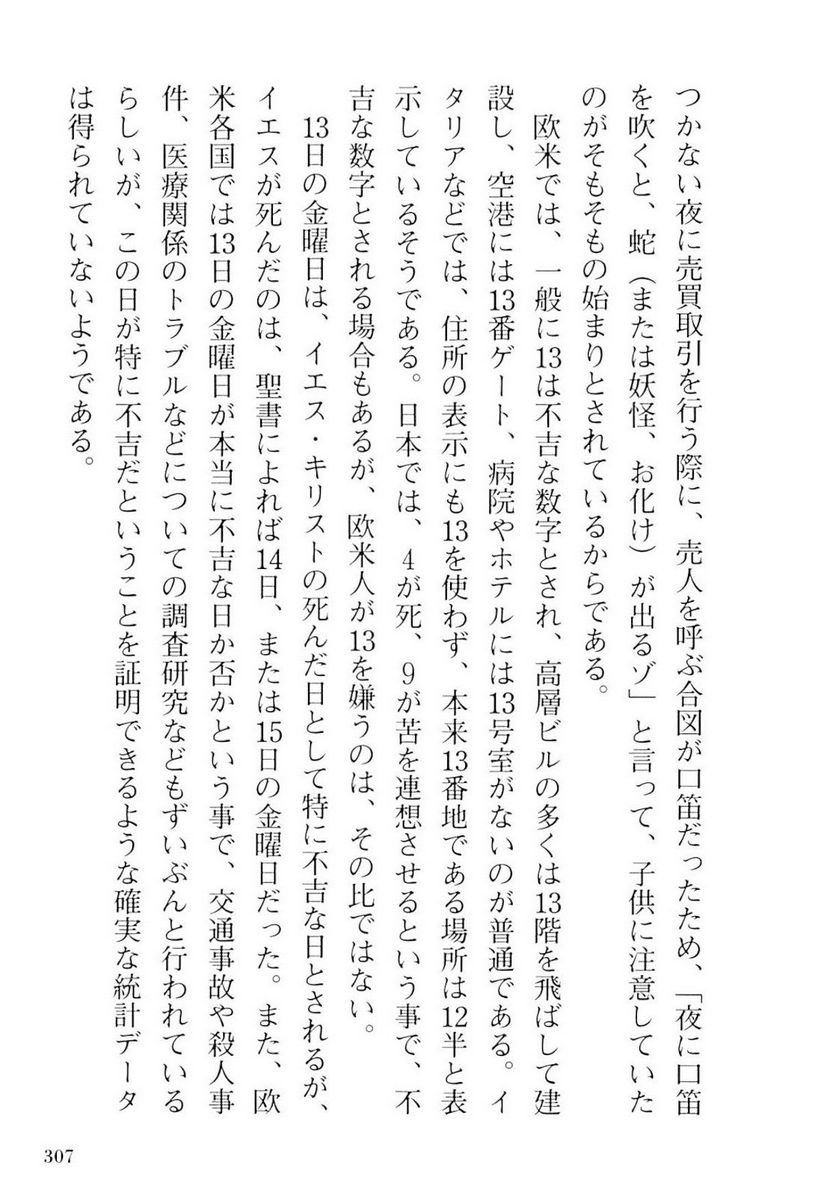 つかない夜に売買取引を行う際に、売人を呼ぶ合図が口笛だったため、「夜に口笛
を吹くと、蛇（または妖怪、お化け）が出るゾ」と言って、子供に注意していた
のがそもそもの始まりとされているからである。
　欧米では、一般に13は不吉な数字とされ、高層ビルの多くは13階を飛ばして建
設し、空港には13番ゲート、病院やホテルには13号室がないのが普通である。イ
タリアなどでは、住所の表示にも13を使わず、本来13番地である場所は12半と表
示しているそうである。日本では、4が死、9が苦を連想させるという事で、不
吉な数字とされる場合もあるが、欧米人が13を嫌うのは、その比ではない。
　13日の金曜日は、イエス・キリストの死んだ日として特に不吉な日とされるが、
イエスが死んだのは、聖書によれば14日、または15日の金曜日だった。また、欧
米各国では13日の金曜日が本当に不吉な日か否かという事で、交通事故や殺人事
件、医療関係のトラブルなどについての調査研究などもずいぶんと行われている
らしいが、この日が特に不吉だということを証明できるような確実な統計データ
は得られていないようである。
307